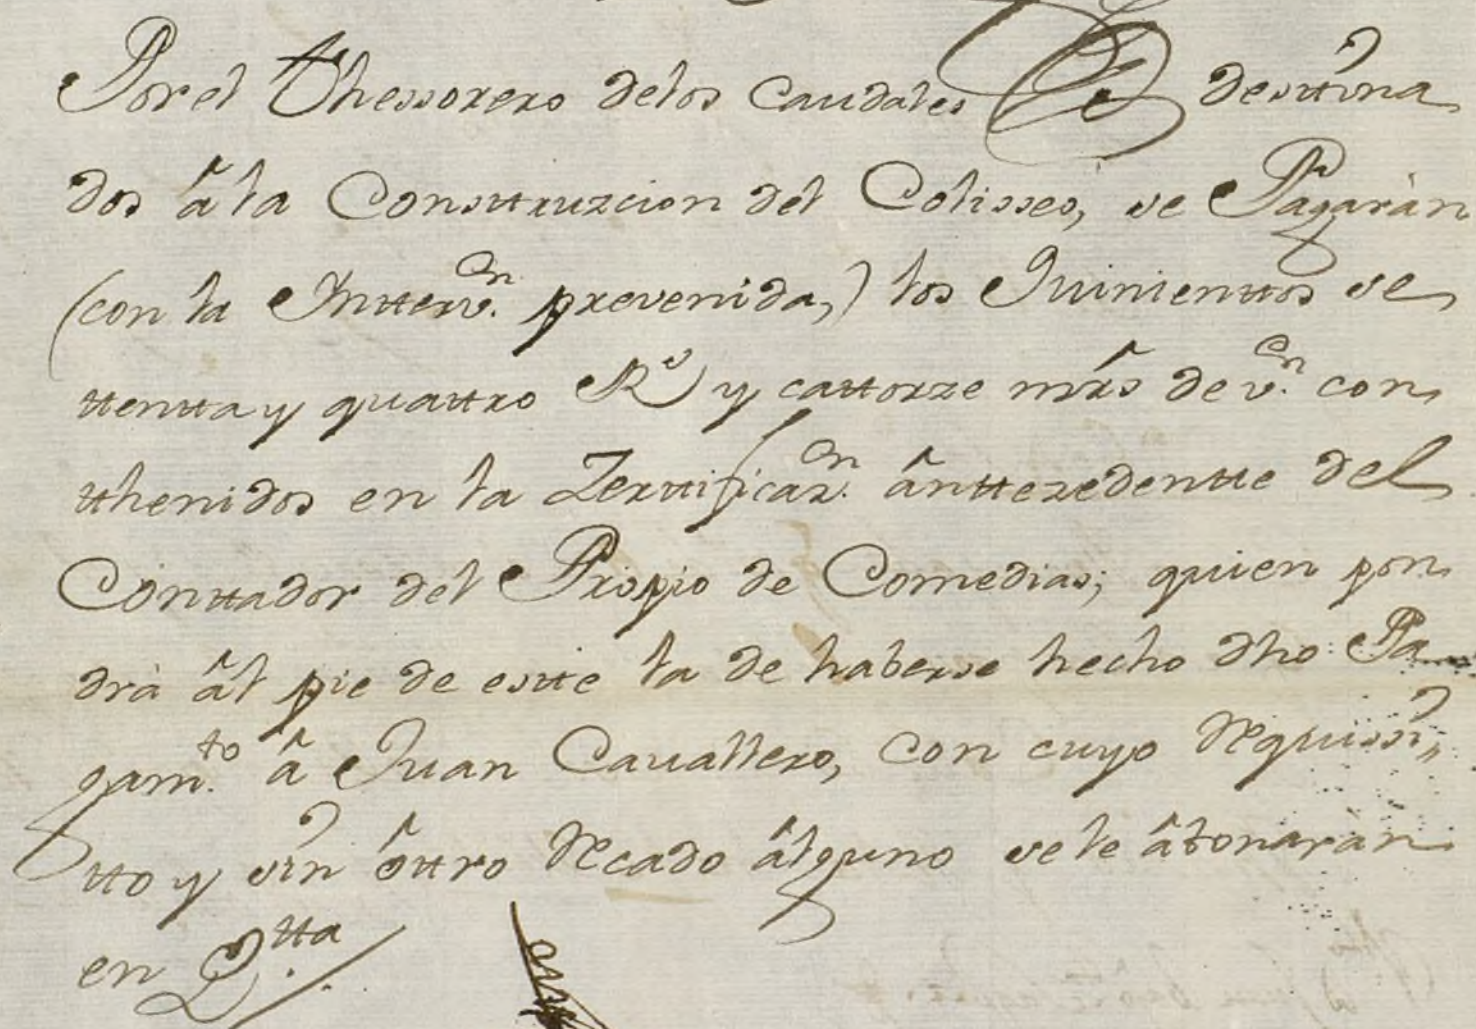 Por el Thessorero delos Caudales destina
dos â la Consttruzcion del Colisseo, se Pagaràn
(con la Intterv.on prevenida,) los Quinienttos se
ttentta y quattro R.s y cattorze mrs de v.on con
thenidos en la Zerttificaz.on ântteredentte del
Conttador del Propio de Comedias; quien pon
drà âl pie de estte la de haberse hecho dho: Pa
gam.to â Juan Cavallero, con cuyo Requissi,
tto y sin ôttro Recado âlguno se le âbonaràn
en Q.tta